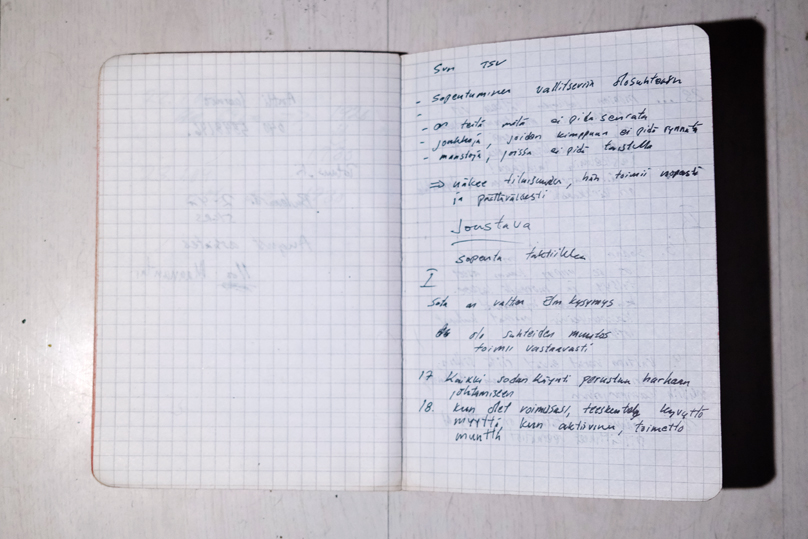 Sun TSU
- sopeutuminen vallitseviin olosuhteisiin
-
- on teitä mitä ei pidä seurata
- joukkoja, joiden kimppuun ei pidä rynnätä
- maastoja, joissa ei pidä taistella
⇒ näkee tilaisuuden, hän toimii nopeasti
ja päättäväisesti
Joustava
sopeuta taktiikka
I
Sota on valtion elin kysymys
olosuhteiden muutos
toimii vastaavasti
17 Kaikki sodan käynti perustuu harhaan
johtamiseen
18. kun olet voimissasi, teeskentele kyvyttö
myyttä, kun aktiivinen, toimetto
muutta